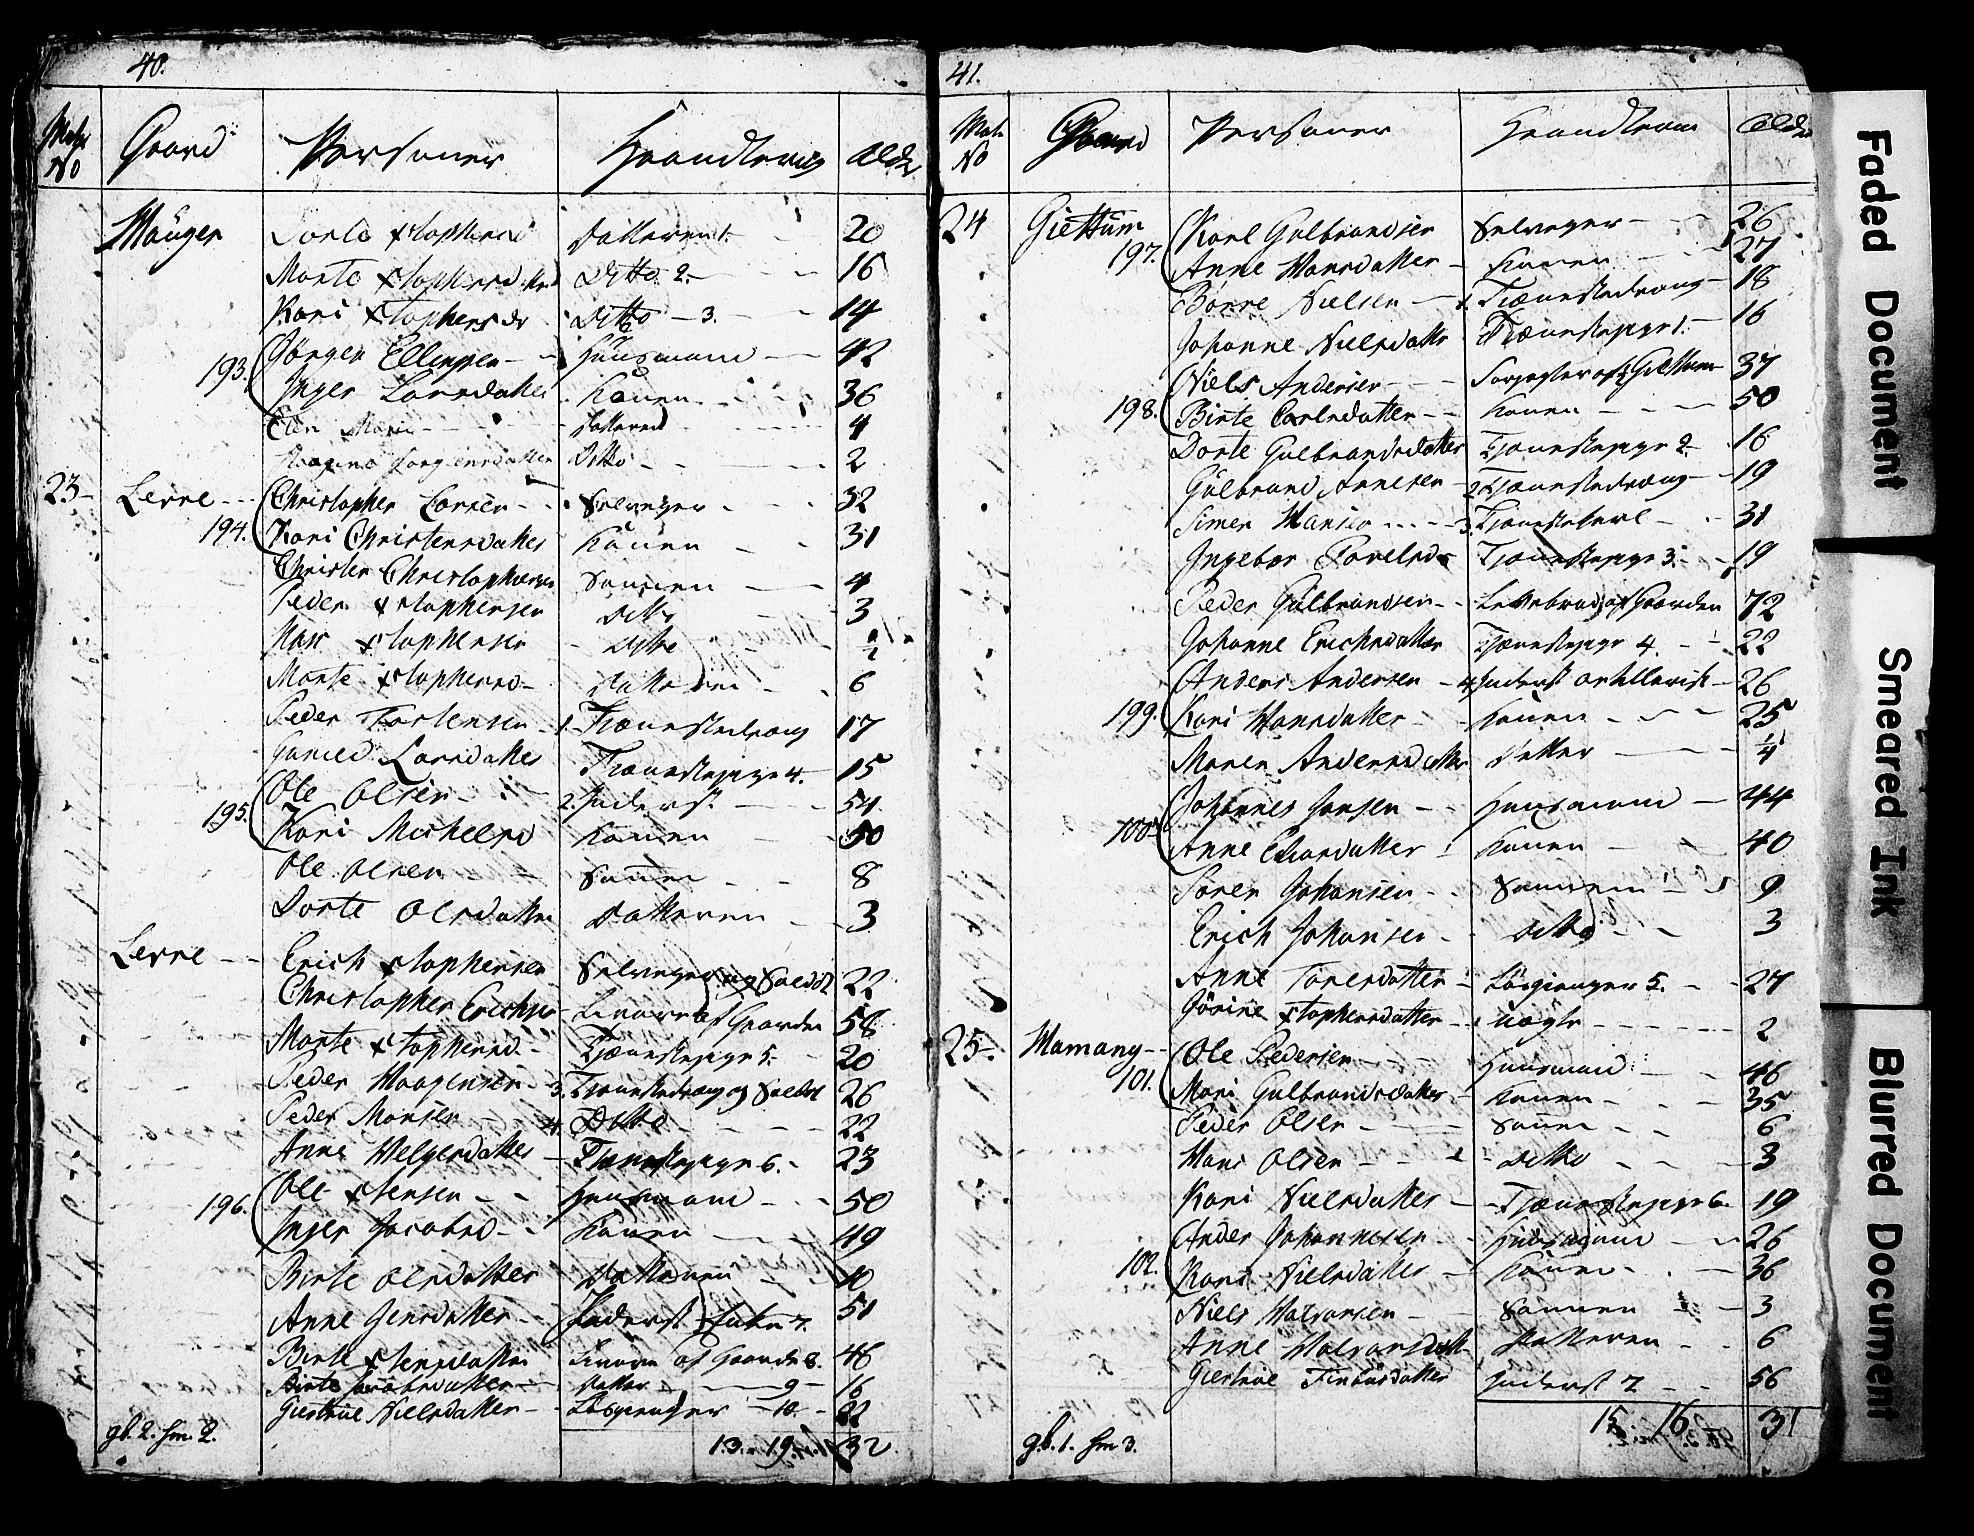 40.
Matr No Gaard Personer Haandtering Alder
Mauger Dorte Xstophersd Datteren 1. 20
Marte Xstophersdatter Ditto 2. 16
Kari Xstophersdr Ditto 3. 14
193. Jørgen Ellingsen Huusmand 42
Inger Larsdatter Konen 36
Ellen Marie Datteren 4
Jørgensdatter Ditto 2
23 Lerre Christopher Larsen Selveyer 32
194. Kari Christensdatter Konen 31
Christen Christophersen Sønnen 4
Peder Xstophersen Ditto 3
Hans Xstophersen Ditto ½
Marte Xstophersd Datteren 6
Peder Torstensen 1. Tienestedreng 17
Larsdatter Tienestepige 4. 15
195. Ole Olsen 2. Inderst 54
Kari Michelsd Konen 50
Ole Olsen Sønnen 8
Dorte Olsdatter Datteren 3
Lerre Erich Xstophersen Selveyer og Soldat 22
Christopher Erichsen Levaar af Gaarden 58
Marte Xstophersd. Tjenestepige 5. 20
Peder Haagensen 3. Tjenestedreng og Soldat 26
Peder Monsen 4. Ditto 22
Anne Helgersdatter Tienestepige 6. 23
196. Ole Jensen Huusmand 50
Inger Jacobsd Konen 49
Birte Olsdatter Datteren 10
Anne Jensdatter Inderst Enke 7. 51
Birte Datter Levaar af Gaarden 8. 46
Birte Jacobsdatter Datter 9 16
Giertrue Nielsdatter Løsgienger 10. 22
gb. 2. hm. 2. 13. 19. 32
41.
Matr No Gaard Personer Haandtering Alder
24 Giettum Karl Gulbrandsen Selveyer 26
197. Anne Hansdatter Konen 27
Børre Nielsen 1. Tienestedreng 18
Johanne Nielsdatter Tienestepige 1. 16
Niels Andersen Forpagter af ½ Giettum 37
198. Birte Carlsdatter Konen 50
Dorte Gulbrandsdatter Tjenestepige 2. 16
Gulbrand Annesen 2 Tjenestedreng 19
Simen Hansen 3. Tjenestekarl 31
Ingebor Povelsdr Tjenestepige 3. 19
Peder Gulbrandsen Levebrød af Gaarden 72
Johanne Erichsdatter Tjenestepige 4. 22
Anders Andersen 4 Inderst Artillerist 26
199. Kari Hansdatter Konen 25
Maren Andersdatter Datter ¼
Johannes Jansen Huusmand 44
100 Anne Datter Konen 40
Søren Johansen Sønnen 9
Erich Johansen Ditto 3
Anne Toresdatter Løsgienger 5. 27
Gurine Xstophersdatter Uægte 2
25. Hamang Ole Pedersen Huusmand 46
101. Mari Gulbrandsdatter Konen 35
Peder Olsen Sønnen 6
Hans Olsen Ditto 3
Kari Nielsdatter Tjenestepige 6. 19
Anders Johannesen Huusmand 26
102. Kari Nielsdatter Konen 36
Niels Halvorsen Sønnen 3
Anne Halvorsdatt Datteren 6
Giertrue Datter Inderst 7 56
gb. 1. hm 3. 15 16. 31
Faded Document
Smeared Ink
Blurred Document